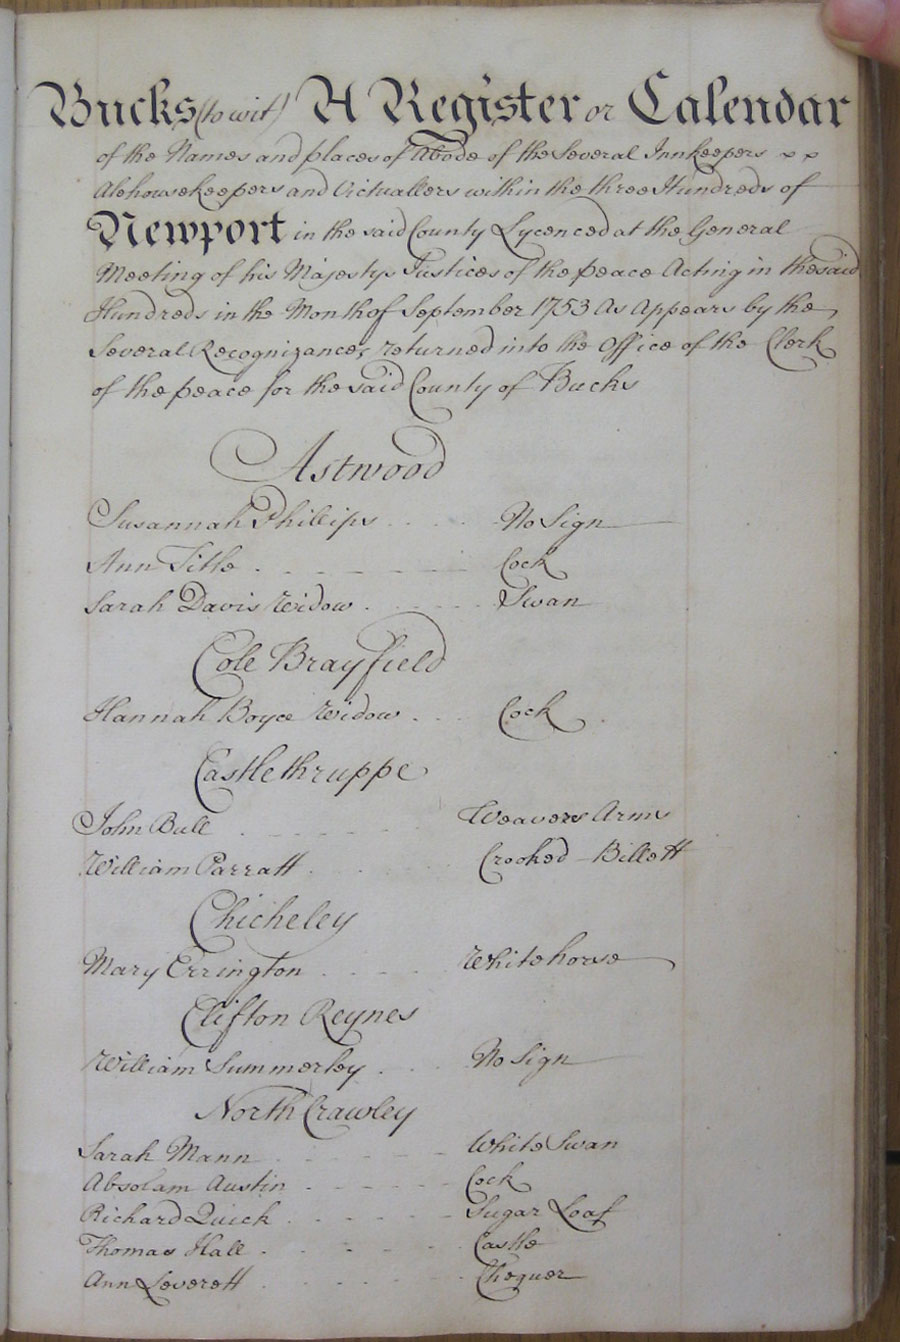 Bucks (to wit) A Register or Calendar
of the Names and places of Abode of the Several Innkeepers x x
Alehousekeepers and Victuallers within the three Hundreds of
Newport in the said County Lycenced at the General
Meeting of his Majestys Justices of the peace Acting in the said
Hundreds in the Month of September 1753 As Appears by the
Several Recognizances returned into the Office of the Clerk
of the peace for the said County of Bucks
Astwood
Susannah Phillips . . . . No Sign
Ann Tithe . - - - - - Cock
Sarah Davis Widow . . - - - Swan
Cole Brayfield
Hannah Boyce Widow . . . Cock .
Castlethruppe
John Bull . - - - - Weavers Arms
William Parratt . . . . Crooked Billett
Chicheley
Mary Errington . . . . Whitehorse
Clifton Reynes
William Summerley . . . No Sign
North Crawley
Sarah Mann - - - - - White Swan
Absolam Austin . - - - - Cock
Richard Quick . . - - - - Sugar Loaf
Thomas Hall . - - - . . Castle
Ann Leverett . . . . . . Chequer